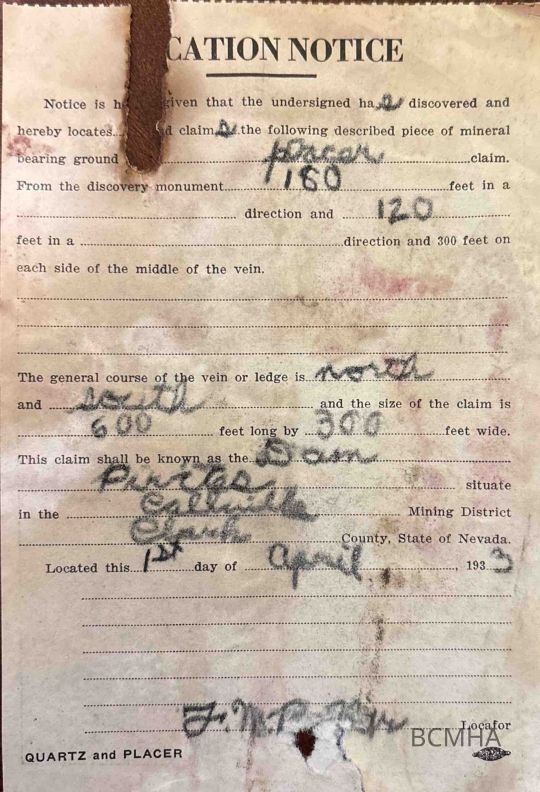 CATION NOTICE
Notice is h given that the undersigned has discovered and
hereby locates d claims the following described piece of mineral
bearing ground placer claim.
From the discovery monument 180 feet in a
direction and 120
feet in a direction and 300 feet on
each side of the middle of the vein.
The general course of the vein or ledge is north
and south and the size of the claim is
600 feet long by 300 feet wide.
This claim shall be known as the Dam
situate
in the Callville Mining District
Clark County, State of Nevada.
Located this 1st day of April, 1933
F. M. Locator
BCMHA
QUARTZ and PLACER